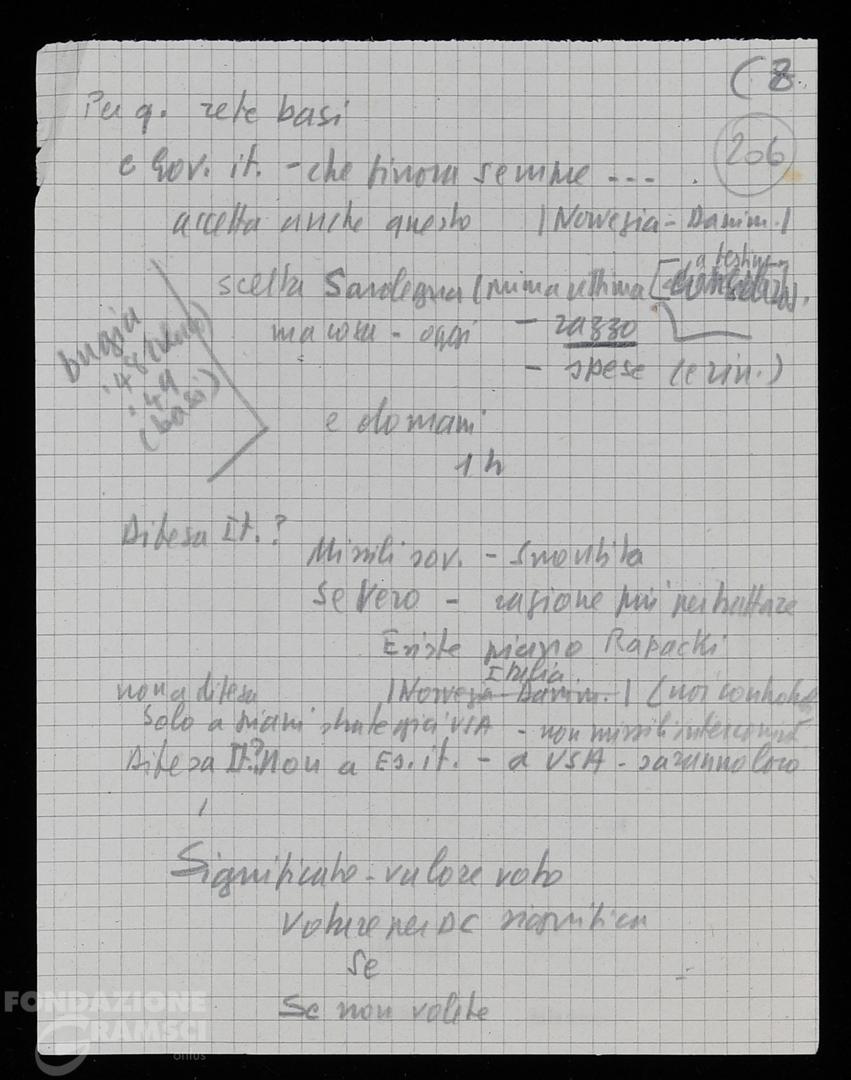 (8.
206
Per q. rete basi
e Gov. it. - che finora sempre ---.
accetta anche questo |Norvegia - Danim.|
a testim.
scelta Sardegna (prima vittima
bugia
'48
'49
(basi)
ma cosa - oggi - razzo
- spese (e rin.)
e domani
1 h
Difesa It.?
Missili sov. - smentita
Se vero - ragione più per trattare
Existe piano Rapacki
Italia
non a difesa |Norvegia - Danim.| (noi
Solo a piani strategici USA - non missili intercont.
Difesa It.? Non a Es. it. - a USA - saranno loro
Significato - valore voto
Votare per DC significa
Se
Se non volete
FONDAZIONE
GRAMSCI
onlus